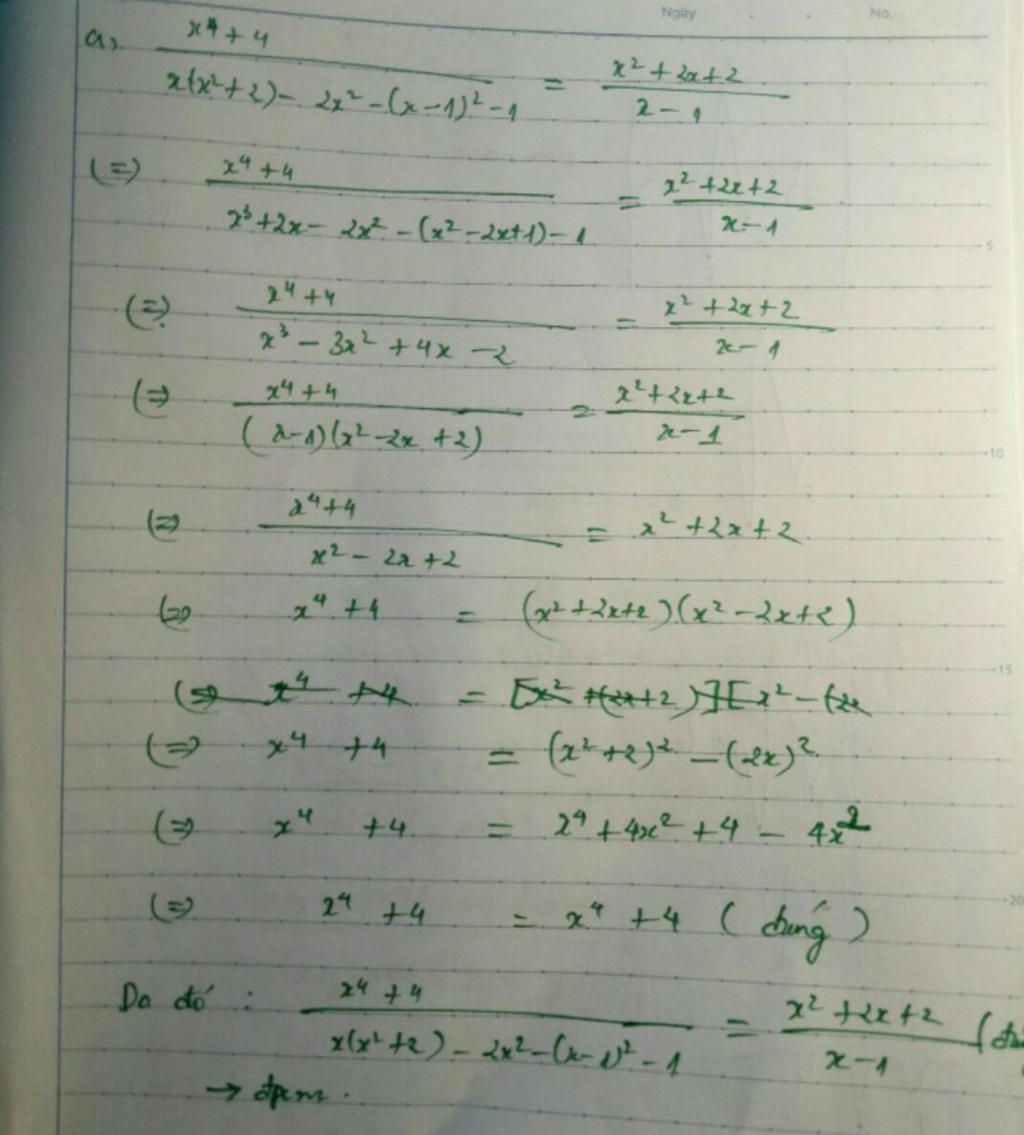 Ngày No.
a, \frac{x^4+4}{x(x^2+2)-2x^2-(x-1)^2-1} = \frac{x^2+2x+2}{x-1}
(=) \frac{x^4+4}{x^3+2x-2x^2-(x^2-2x+1)-1} = \frac{x^2+2x+2}{x-1}
(=) \frac{x^4+4}{x^3-3x^2+4x-2} = \frac{x^2+2x+2}{x-1}
(=) \frac{x^4+4}{(x-1)(x^2-2x+2)} = \frac{x^2+2x+2}{x-1}
(=) \frac{x^4+4}{x^2-2x+2} = x^2+2x+2
(=) x^4+4 = (x^2+2x+2)(x^2-2x+2)
(=) x^4+4 = [x^2+(2x+2)][x^2-(2x
(=) x^4+4 = (x^2+2)^2-(2x)^2
(=) x^4+4 = x^4+4x^2+4-4x^2
(=) x^4+4 = x^4+4 (đúng)
Do đó: \frac{x^4+4}{x(x^2+2)-2x^2-(x-1)^2-1} = \frac{x^2+2x+2}{x-1}
→ đpcm.
5
10
15
20